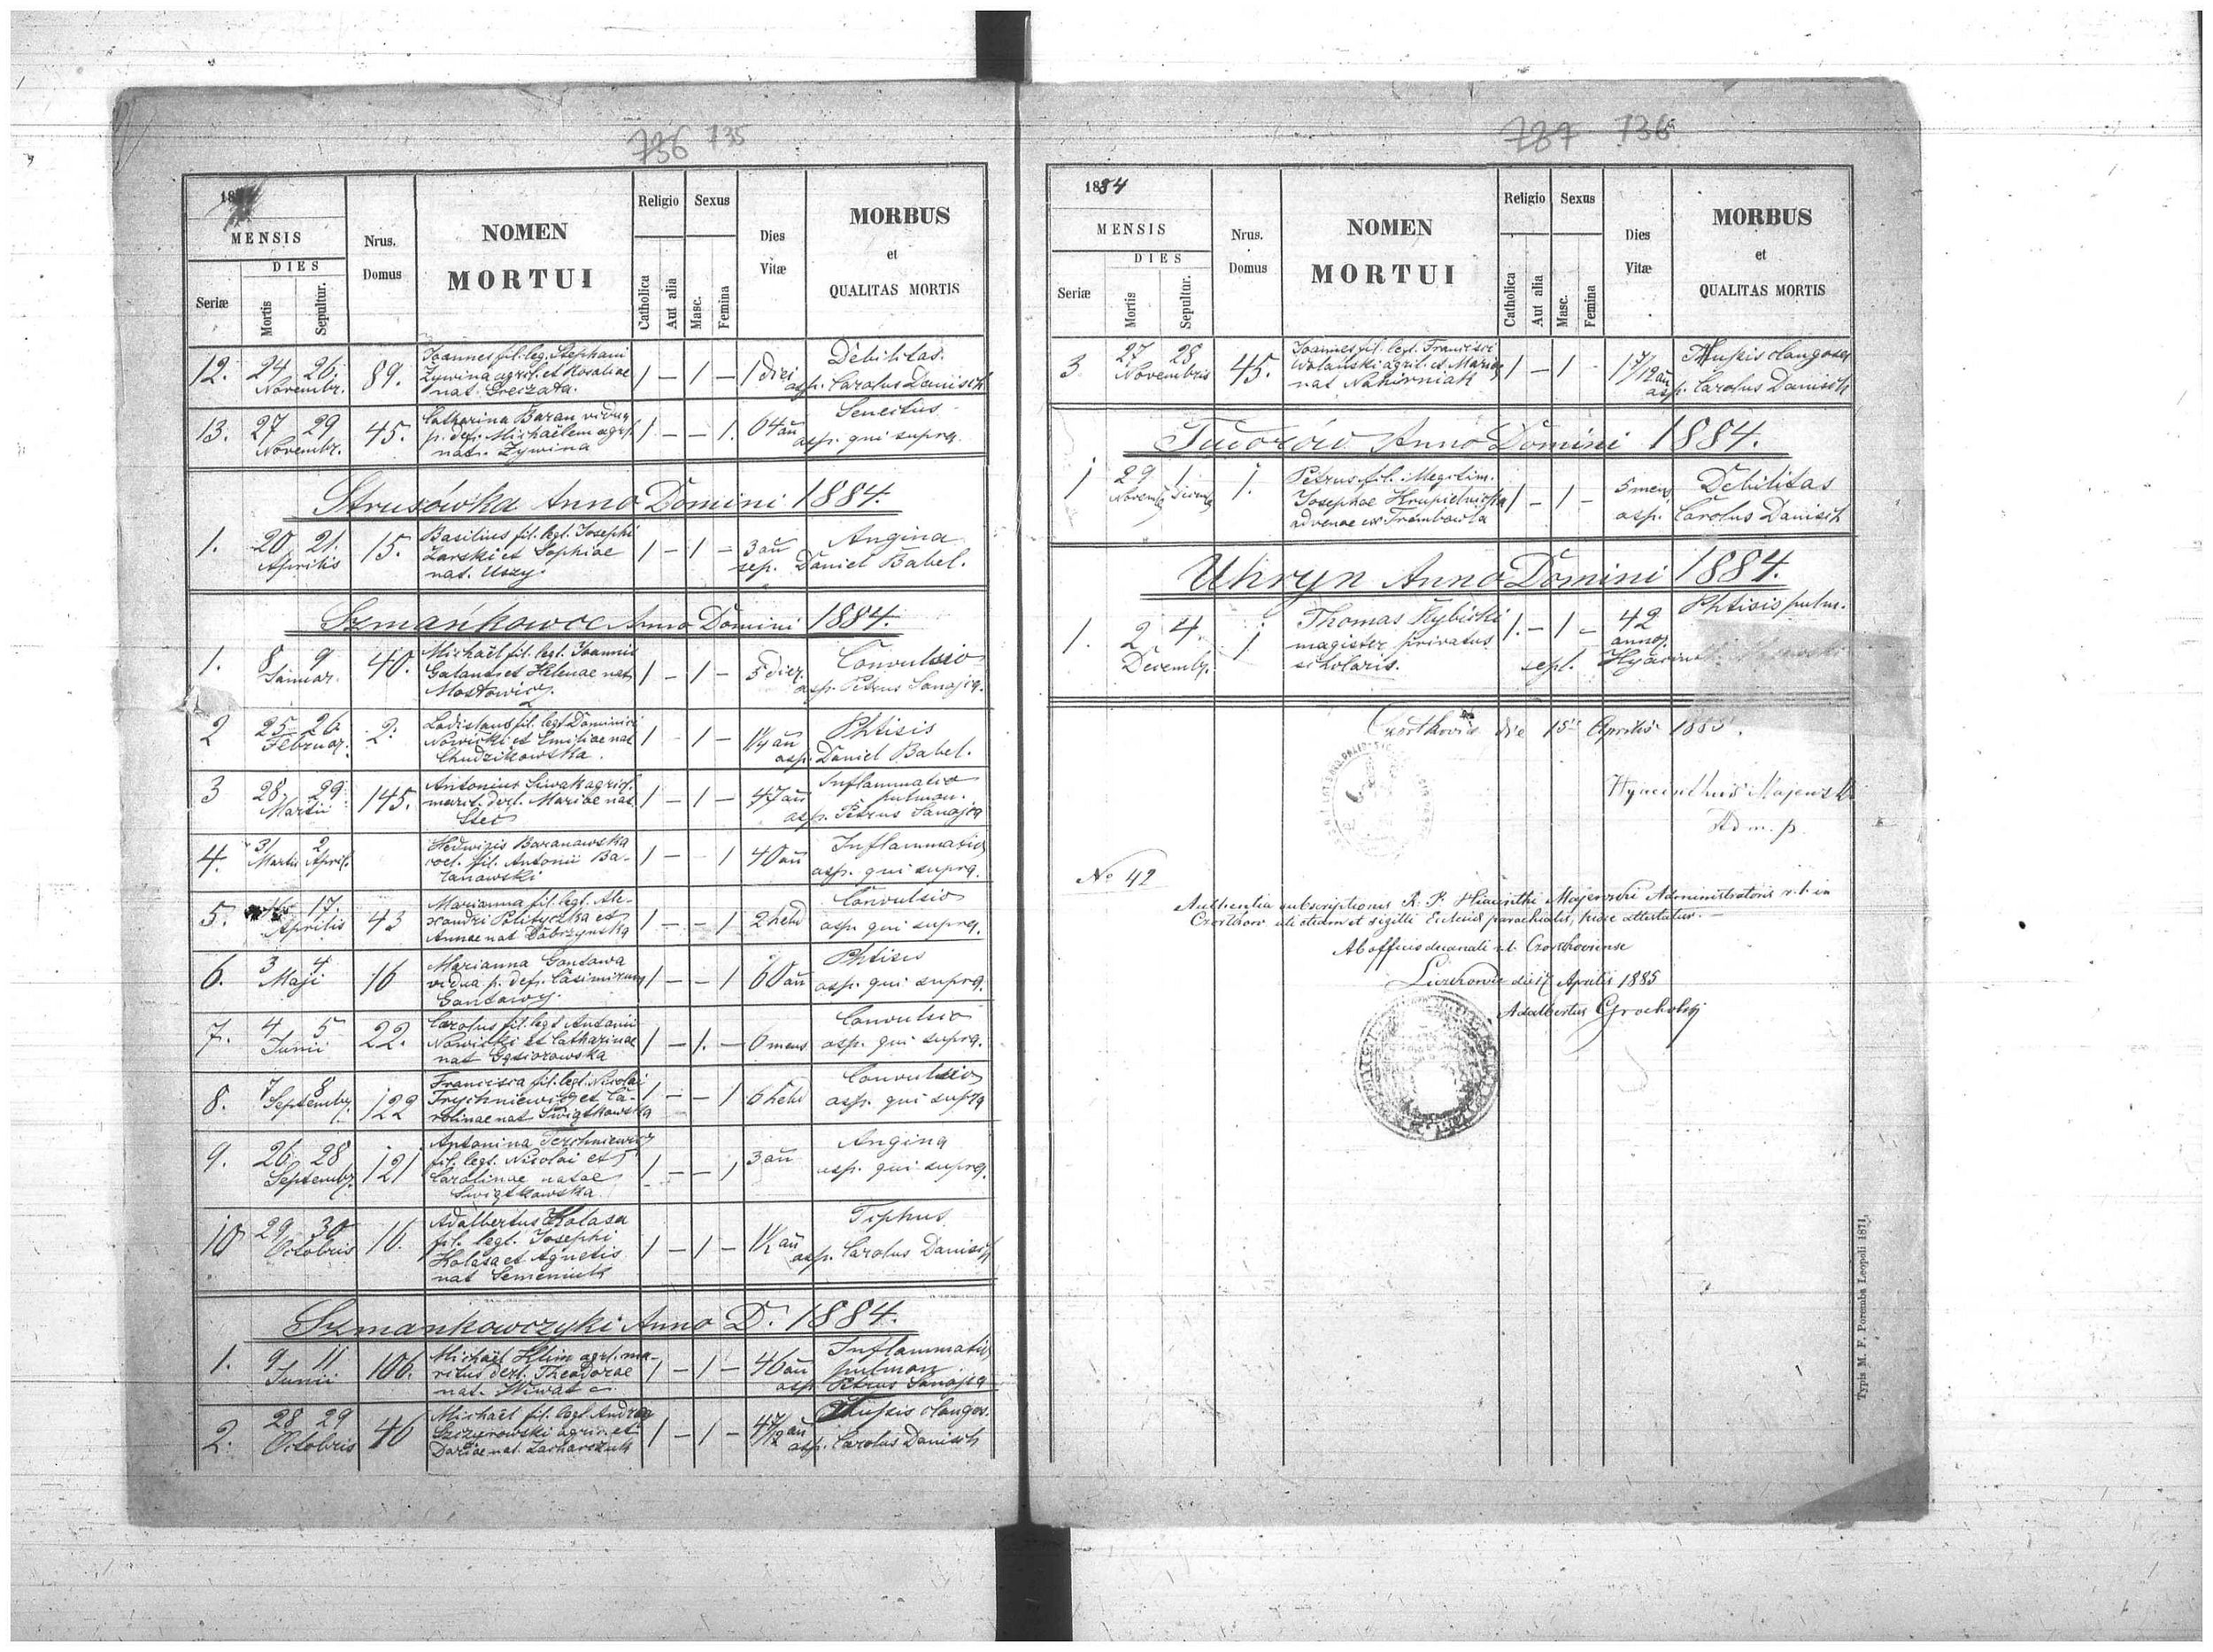 736 735
18
MENSIS
DIES
Seriæ
Mortis
Sepultur.
Nrus.
Domus
NOMEN
MORTUI
Religio
Catholica
Aut alia
Sexus
Masc.
Femina
Dies
Vitæ
MORBUS
et
QUALITAS MORTIS
12. 24 26. Novembr. 89. Joannes fil. leg. Stephani 1 — 1 — 1 diei Debilitas.
Zywina agric. et Rosaliae asp. Carolus Danisch
nat. Greszata.
13. 27 29 Novembr. 45. Catharina Baran vidua 1 — — 1. 64 an Senectus
p. def. Michaëlem agr. asp. qui supra.
nat. Zywina
Strusówka Anno Domini 1884.
1. 20 21. Aprilis 15. Basilius fil. legt. Josephi 1 — 1 — 3 an Angina
Zarski et Sophiae sep. Daniel Babel.
nat. Uszy.
Szmańkowce Anno Domini 1884.
1. 8 9 Januar. 40. Michaël fil. legt. Joannis 1 — 1 — 5 dier. Convulsio
Galant et Helenae nat. asp. Petrus Sanojca.
Mostowicz
2 25 26 Februar. 2. Ladislaus fil. legt. Dominici 1 - 1 — 1 1/4 an Phtisis
Nowicki et Emiliae nat asp. Daniel Babel.
Chudzikowska.
3 28. 29. Martii 145. Antonius Siwak agric. 1 — 1 — 47 an Inflammatio
marit. der. Mariae nat. pulmon.
Stec asp. Petrus Sanojca
4. 31 Martii 2 April. Hedwigis Baranowska 1 — — 1 40 an Inflammatio
coel. fil. Antonii Ba- asp. qui supra.
ranowski
5. 16 17. Aprilis 43 Marianna fil. legt. Ale- 1 — — 1 2 hebd Convulsio
xandri Polityczka et asp. qui supra.
Annae nat Dobrzynska
6. 3 4 Maji 16 Marianna Gontawa 1 — — 1 60 an Phtisis
vidua p. def. Casimirum asp. qui supra.
Gontawy.
7. 4 5 Junii 22. Carolus fil. legt Antonii 1 — 1. — 6 mens Convulsio
Nowicki et Catharinae asp. qui supra.
nat Gąsiorowska
8. 7 8 Septembr. 122 Francisca fil. legt. Nicolai 1 — — 1 6 hebd Convulsio
Trychniewicz et Ca- asp. qui supra
rolinae nat Swiątkowska
9. 26 28 Septembr. 121 Antonina Terchniewicz 1 — — 1 3 an Angina
fil. legt. Nicolai et asp. qui supra.
Carolinae natae
Swiątkowska
10 29 30 Octobris 16. Adalbertus Kolasa 1 — 1 — 1 1/2 an Tiphus
fil. legt. Josephi asp. Carolus Danisch
Kolasa et Agnetis
nat Semeniuk
Szmankowczyki Anno D. 1884.
1. 9 11 Junii 106. Michaël Klim agri. ma- 1 — 1 — 46 an Inflammatio
ritus der. Theodorae pulmon
nat. Wiwat asp Petrus Sanojca
2. 28 29 Octobris 46 Michaël fil. legt. Andreae 1 — 1 — 4 7/12 an
Szczyrowski agric. et asp. Carolus Danisch
Dariae nat. Zacharczuk
737 736
1884
MENSIS
DIES
Seriæ
Mortis
Sepultur.
Nrus.
Domus
NOMEN
MORTUI
Religio
Catholica
Aut alia
Sexus
Masc.
Femina
Dies
Vitæ
MORBUS
et
QUALITAS MORTIS
3 27 28 Novembris 45. Joannes fil. legt. Francisci 1 — 1 - 1 7/12 an
Wolański agril. et Mariae asp. Carolus Danisch
nat Nakirniak
Tudorów Anno Domini 1884.
1 29 Novemb. 1 Decemb. 1. Petrus fil. illegitim. 1 — 1 — 5 mens Debilitas
Josephae Krupielnicka asp. Carolus Danisch
advenae ex Trambowla
Uhryn Anno Domini 1884.
1. 2 4. Decembr. 1 Thomas Rybicki 1. — 1 — 42 Phtisis pulm.
magister privatus annor.
scholaris. sepl. Hyacinth. Majewski
Czortkovie die 15 Aprilis 1885.
Hyacinthus Majewski
Adm. p.
No 42
Authentia subscriptionis R. P. Hiacinthi Majewski Administratoris r. l. in
Czortkow uti etiam et sigilli Ecclesiæ parochialis, hisce attestatur. —
Ab officio decanali r. l. Czortkoviense
die 17 Aprilis 1885
Adalbertus Grocholski
Typis M. F. Poremba Leopoli 1871.